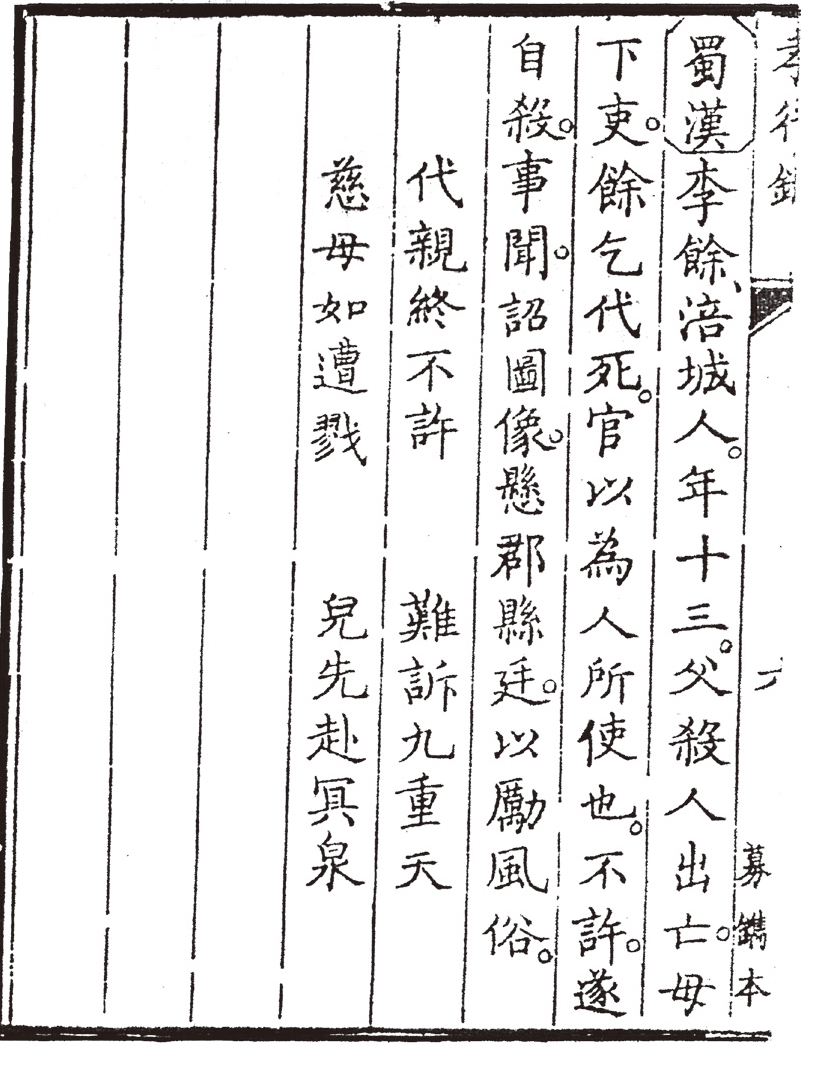 孝行錄
六
募鐫本
蜀漢李餘、涪城人。年十三。父殺人出亡。母
下吏。餘乞代死。官以為人所使也。不許。遂
自殺。事聞。詔圖像。懸郡縣廷。以厲風俗。
代親終不許　難訴九重天
慈母如遭戮　兒先赴冥泉